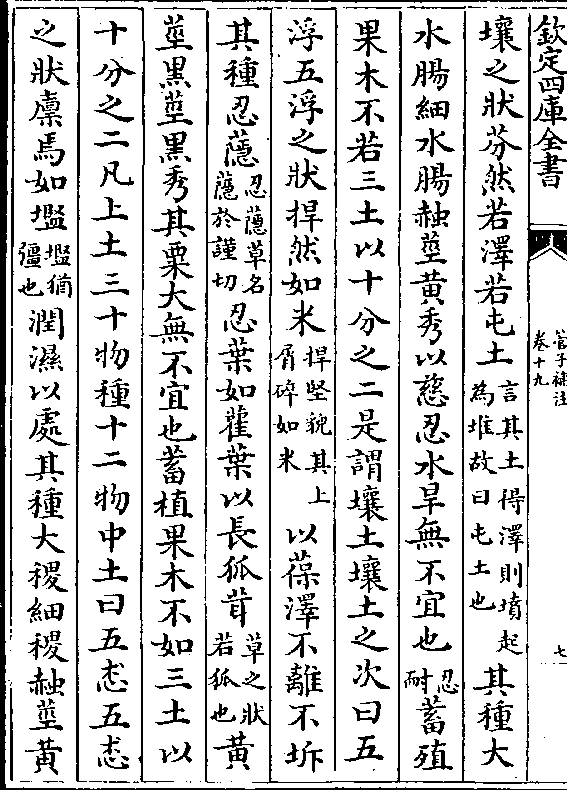 欽定四庫全書
管子補注
卷十九
七
壤之狀芬然若澤若屯土言其土得澤則墳起為堆故曰屯土也其種大
水腸細水腸赨莖黃秀以慈忍水旱無不宜也忍耐蓄殖
果木不若三土以十分之二是謂壤土壤土之次曰五
浮五浮之狀捍然如米捍堅貌其上屑碎如米以葆澤不離不坼
其種忍蘟忍蘟草名蘟於謹切忍葉如雚葉以長狐茸草之狀若狐也黃
莖黑莖黑秀其粟大無不宜也蓄植果木不如三土以
十分之二凡上土三十物種十二物中土曰五怸五怸
之狀廪焉如壏壏猶彊也潤濕以處其種大稷細稷赨莖黃